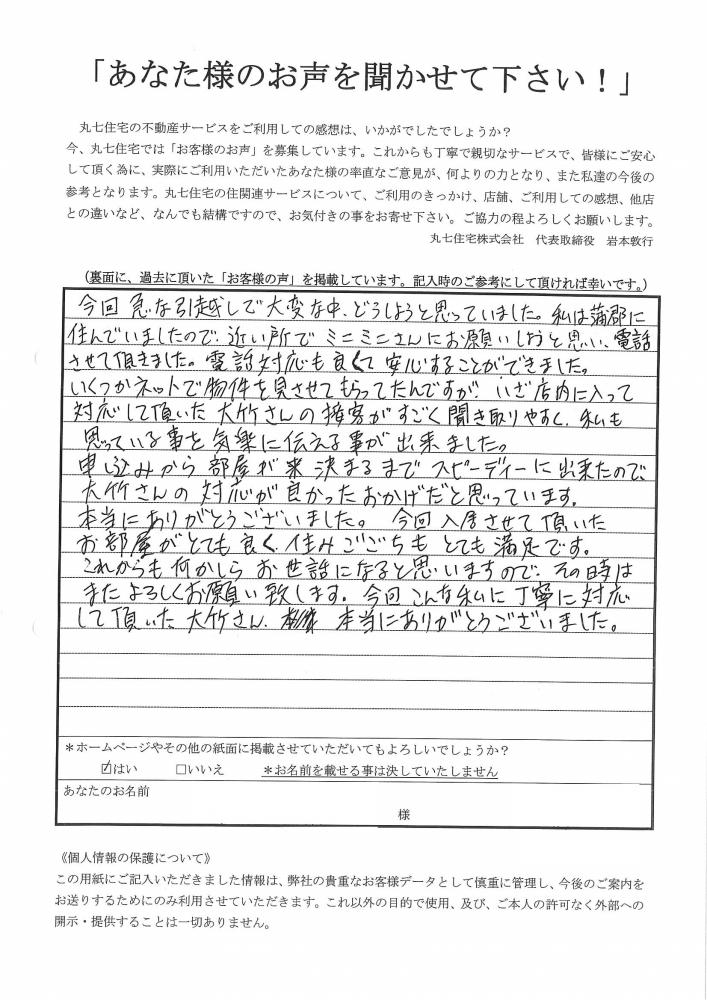 「あなた様のお声を聞かせて下さい！」
丸七住宅の不動産サービスをご利用しての感想は、いかがでしたでしょうか？
今、丸七住宅では「お客様のお声」を募集しています。これからも丁寧で親切なサービスで、皆様にご安心
して頂く為に、実際にご利用いただいたあなた様の率直なご意見が、何よりの力となり、また私達の今後の
参考となります。丸七住宅の住関連サービスについて、ご利用のきっかけ、店舗、ご利用しての感想、他店
との違いなど、なんでも結構ですので、お気付きの事をお寄せ下さい。ご協力の程よろしくお願いします。
丸七住宅株式会社　代表取締役　岩本敦行
（裏面に、過去に頂いた「お客様の声」を掲載しています。記入時のご参考にして頂ければ幸いです。）
今回 急な引越しで大変な中、どうしようと思っていました。私は蒲郡に
住んでいましたので、近い所で ミニミニさんにお願いしようと思い、電話
させて頂きました。電話対応も良くて 安心することができました。
いくつかネットで物件を見させてもらってたんですが、いざ店内に入って
対応して頂いた 大竹さんの接客がすごく聞き取りやすく、私も
思っている事を気楽に伝える事が出来ました。
申し込みから 部屋が 決まるまで スピーディーに出来たので、
大竹さんの対応が良かったおかげだと思っています。
本当にありがとうございました。 今回入居させて頂いた
お部屋がとても良く、住みごごちも とても満足です。
これからも何かしら お世話になると思いますので、その時は
またよろしくお願い致します。今回こんな私に丁寧に対応
して頂いた 大竹さん、 本当にありがとうございました。
＊ホームページやその他の紙面に掲載させていただいてもよろしいでしょうか？
☑はい　□いいえ　＊お名前を載せる事は決していたしません
あなたのお名前
様
《個人情報の保護について》
この用紙にご記入いただきました情報は、弊社の貴重なお客様データとして慎重に管理し、今後のご案内を
お送りするためにのみ利用させていただきます。これ以外の目的で使用、及び、ご本人の許可なく外部への
開示・提供することは一切ありません。